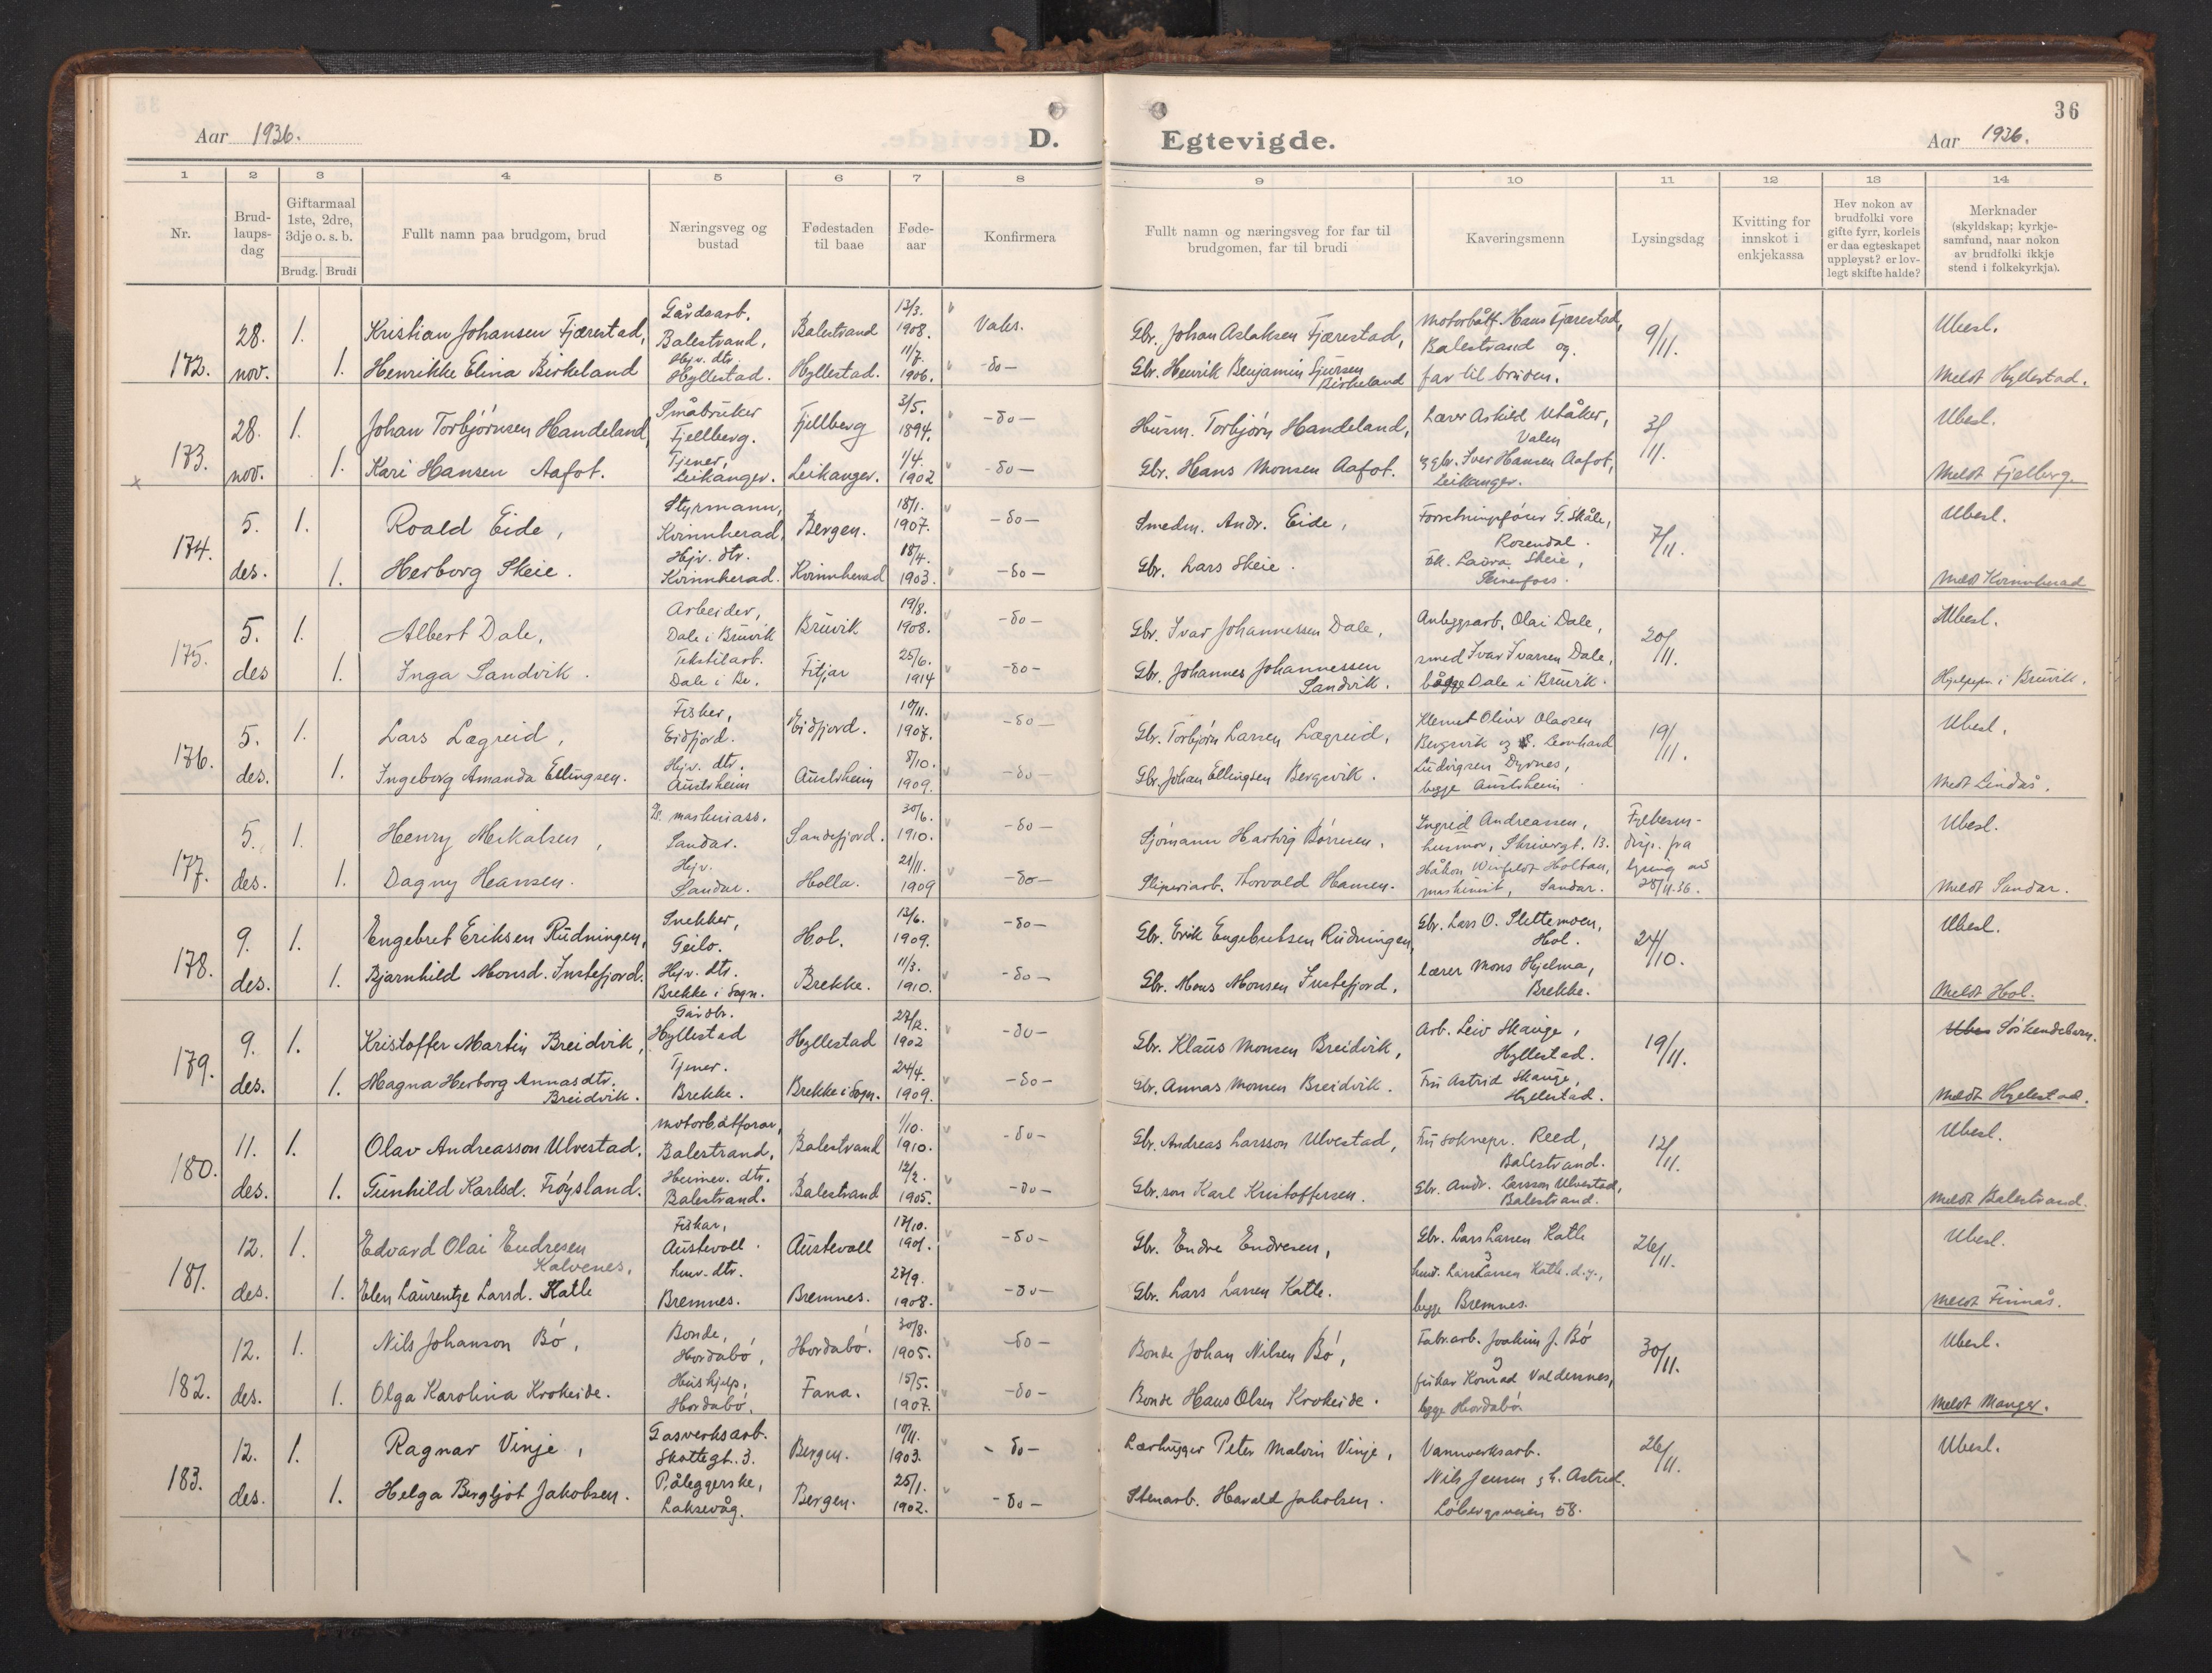 36
Aar 1936. D. Egtevigde. Aar 1936.
1 2 3 4 5 6 7 8 9 10 11 12 13 14
Nr.
Brud-
laups-
dag
Giftarmaal
1ste, 2dre,
3dje o. s. b.
Brudg. Brudi
Fullt namn paa brudgom, brud
Næringsveg og
bustad
Fødestaden
til baae
Føde-
aar
Konfirmera
Fullt namn og næringsveg for far til
brudgomen, far til brudi
Kaveringsmenn
Lysingsdag
Kvitting for
innskot i
enkjekassa
Hev nokon av
brudfolki vore
gifte fyrr, korleis
er daa egteskapet
uppløyst? er lov-
legt skifte halde?
Merknader
(skyldskap; kyrkje-
samfund, naar nokon
av brudfolki ikkje
stend i folkekyrkja).
172.
28.
nov.
1.
1.
Kristian Johansen Fjærestad,
Henrikke Elina Birkeland
Gårdsarb.
Balestrand,
Hejv. dtr.
Hyllestad.
Balestrand
Hyllestad.
13/3.
1908.
11/7.
1906.
Vaks.
-do-
Gbr. Johan Aslaksen Fjærestad,
Gbr. Henrik Benjamin Sjursen
Birkeland
Motorbåtf. Hans Fjærestad,
Balestrand og
far til bruden.
9/11.
Ubesl.
Meldt Hyllestad.
173.
28.
nov.
1.
1.
Johan Torbjørnsen Handeland,
Kari Hansen Aafot.
Småbruker
Fjellberg.
Tjener,
Leikanger.
Fjellberg
Leikanger.
3/5.
1894.
1/4.
1902
-do-
-do-
Husm. Torbjørn Handeland,
Gbr. Hans Monsen Aafot.
Lærer Askild Utåker,
Valen
og gbr. Iver Hansen Aafot,
Leikanger.
3/11.
Ubesl.
Meldt Fjelberg
174.
5.
des.
1.
1.
Roald Eide,
Herborg Skeie.
Styrmann,
Kvinnherad,
Hejv. dtr.
Kvinnherad.
Bergen.
Kvinnherad
18/1.
1907.
18/4.
1903.
-do-
-do-
Smedm. Andr. Eide,
Gbr. Lars Skeie.
Forretningsfører G. Skåle,
Rosendal.
Frk. Laura Skeie,
7/11.
Ubesl.
Meldt Kvinnherad
175.
5.
des
1.
1.
Albert Dale,
Inga Sandvik.
Arbeider,
Dale i Bruvik
Tekstilarb.
Dale i Br.
Bruvik
Fitjar
19/8.
1908.
25/6.
1914
-do-
-do-
Gbr. Ivar Johannessen Dale,
Gbr. Johannes Johannessen
Sandvik.
Anleggsarb. Olai Dale,
smed Ivar Ivarsen Dale,
begge Dale i Bruvik.
20/11.
Ubesl.
Hjelpepr. i Bruvik.
176.
5.
des.
1.
1.
Lars Lægreid,
Ingeborg Amanda Ellingsen.
Fisker,
Eidfjord.
Hejv. dtr.
Austrheim
Eidfjord.
Austrheim
10/11.
1907.
8/10.
1909.
-do-
-do-
Gbr. Torbjørn Larsen Lægreid,
Gbr. Johan Ellingsen Bergsvik.
Klemet Oliver Olavsen
Bergsvik og S. Leonhard
Ludvigsen Dyrnes,
begge Austrheim
19/11.
Ubesl.
Meldt Lindås.
177.
5.
des.
1.
1.
Henry Mikalsen,
Dagny Hansen.
maskinass.
Sandar.
Hejv.
Sandar.
Sandefjord.
Holla.
30/6.
1910.
21/11.
1909
-do-
-do-
Sjømann Hartvig Børresen,
Sliperiarb. Thorvald Hansen.
Ingrid Andreassen,
husmor, Skrivergt. 13.
Håkon Winfeldt Holtan,
maskinist, Sandar.
Fylkesm-
disp. fra
lysing av
28/11.36.
Ubesl.
Meldt Sandar.
178.
9.
des.
1.
1.
Engebret Eriksen Rudningen,
Bjarnhild Monsd. Instefjord.
Snekker,
Geilo.
Hejv. dtr.
Brekke i Sogn.
Hol.
Brekke.
13/6.
1909.
11/3.
1910.
-do-
-do-
Gbr. Erik Engebretsen Rudningen,
Gbr. Mons Monsen Instefjord.
Gbr. Lars O. Slettemoen,
Hol.
lærer Mons Hjelma,
Brekke.
24/10.
Ubesl.
Meldt Hol.
179.
9.
des.
1.
1.
Kristoffer Martin Breidvik,
Magna Herborg Annasdtr.
Breidvik.
Gårdbr.
Hyllestad
Tjener.
Brekke.
Hyllestad
Brekke i Sogn.
27/2.
1902
24/4.
1909.
-do-
-do-
Gbr. Klaus Monsen Breidvik,
Gbr. Annas Monsen Breidvik.
Arb. Leiv Skauge,
Hyllestad.
Fru Astrid Skauge,
Hyllestad.
19/11.
Ubes Søskendebarn.
Meldt Hyllestad.
180.
11.
des.
1.
1.
Olav Andreasson Ulvestad.
Gunhild Karlsd. Frøysland.
Motorbåtførar,
Balestrand,
Heimev. dtr.
Balestrand.
Balestrand
Balestrand
1/10.
1910.
12/2.
1905.
-do-
-do-
Gbr. Andreas Larsson Ulvestad,
Gbr.son Karl Kristoffersen.
Fru soknepr. Reed,
Balestrand.
Gbr. Andr. Larsson Ulvestad,
Balestrand.
12/11.
Ubesl.
Meldt Balestrand.
181.
12.
des.
1.
1.
Edvard Olai Endresen
Kalvenes,
Elen Laurentze Larsd. Katle
Fiskar,
Austevoll.
husv. dtr.
Bremnes.
Austevoll
Bremnes.
17/10.
1901.
27/9.
1908.
-do-
-do-
Gbr. Endre Endresen,
Gbr. Lars Larsen Katle.
Gbr. Lars Larsen Katle
og
Lars Larsen Katle d.y.,
begge Bremnes.
26/11.
Ubesl.
Meldt Finnås.
182.
12.
des.
1.
1.
Nils Johanson Bø,
Olga Karolina Krokeide.
Bonde,
Hordabø,
Hushjelp,
Hordabø.
Hordabø.
Fana.
30/8.
1905.
15/5.
1907.
-do-
-do-
Bonde Johan Nilsen Bø,
Bonde Hans Olsen Krokeide.
Fabr.arb. Joakim J. Bø
og
fiskar Konrad Valdersnes,
begge Hordabø
30/11.
Ubesl.
Meldt Manger.
183.
12.
des.
1.
1.
Ragnar Vinje,
Helga Bergljot Jakobsen.
Gasverksarb.
Skottegt. 3.
Påleggerske,
Laksevåg.
Bergen.
Bergen.
10/11.
1903.
25/1.
1902.
-do-
-do-
Peter Malvin Vinje,
Stenarb. Harald Jakobsen.
Vannverksarb.
Nils Jensen og h. Astrid.
Løbergsveien 58.
26/11.
Ubesl.